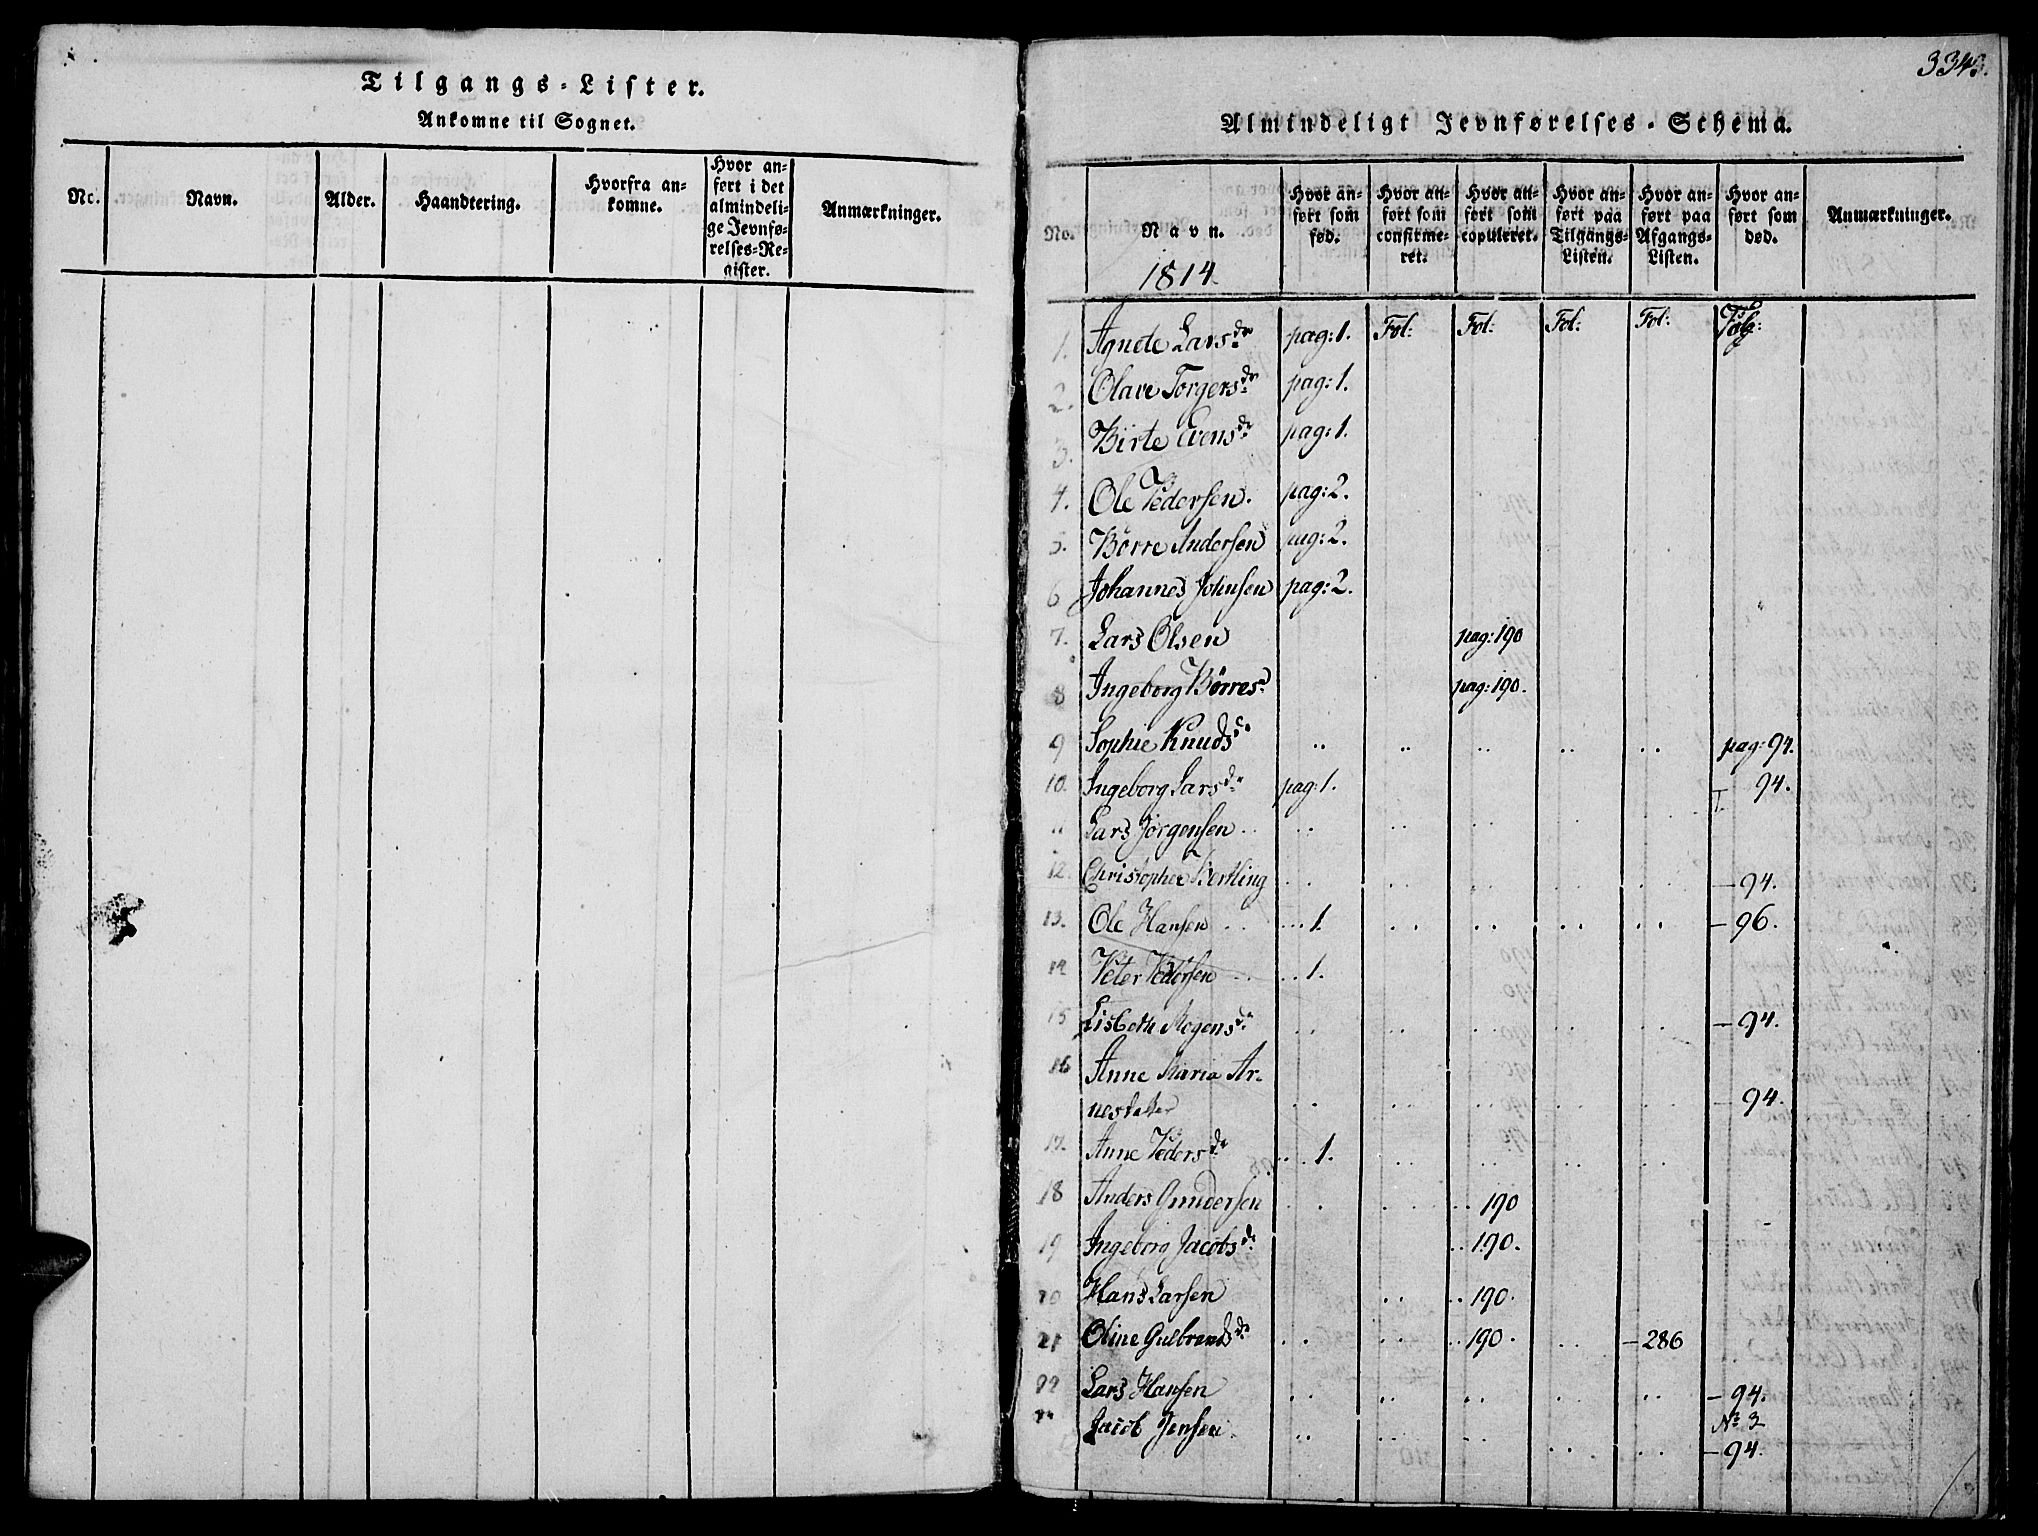 Tilgangs-Lister.
Ankomne til Sognet.
No. Navn. Alder. Haandtering. Hvorfra ankomne. Hvor anført i det almindelige Jevnførelses-Register. Anmærkninger.
334
Almindeligt Jevnførelses-Schema.
No. Navn. Hvor anført som fød. Hvor anført som confirmeret. Hvor anført som copuleret. Hvor anført paa Tilgangs-Listen. Hvor anført paa Afgangs-Listen. Hvor anført som død. Anmærkninger.
1814.
1. Agnete Larsdr pag: 1. Fol: Fol: Fol: Fol:
2. Olave Torgersdr pag: 1.
3. Birte Evensdr pag: 1.
4. Ole Pedersen. pag: 2.
5. Børre Andersen pag: 2.
6 Johannes Johnsen pag: 2.
7. Lars Olsen pag: 190
8 Ingeborg Børresd pag: 190.
9 Sophie Knudsdr pag: 94.
10. Ingeborg Larsdr pag: 1. 94.
Lars Jørgensen
12. Christopher Bertling — 94.
13. Ole Hansen 1. — 96.
14 Peter Pedersen 1.
15 Lisbeth Mogensdr — 94.
16 Anne Maria Ar-
nesdatter — 94.
17. Anne Pedersdr 1.
18 Anders Gundersen 190
19 Ingeborg Jacobsdr 190.
20 Hans Larsen 190.
21 Oline Gulbrandsdr 190. — 286
22 Lars Hansen — 94.
No 3
Jacob Jensen — 94.